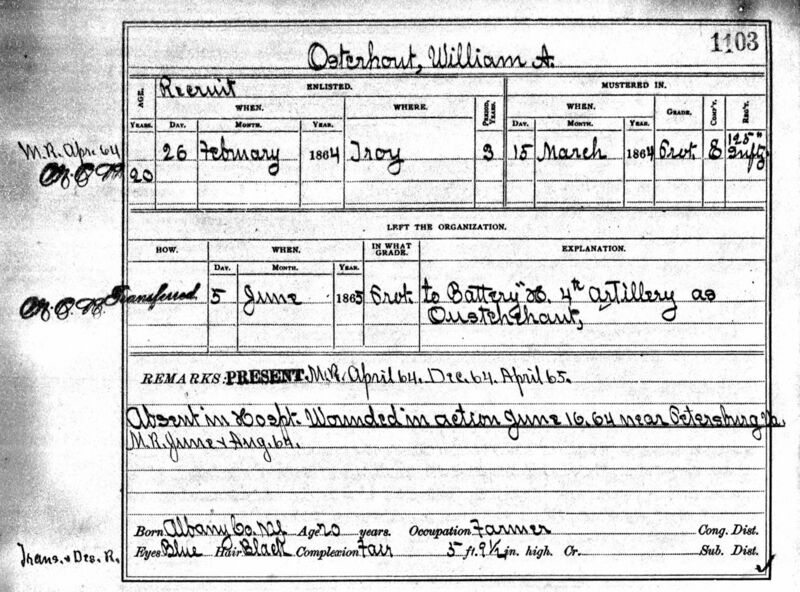 1103
Osterhout, William A.
AGE. Recruit ENLISTED. MUSTERED IN.
WHEN. WHERE. PERIOD, YEARS. WHEN. GRADE. COMP'Y. REG'T.
YEARS. DAY. MONTH. YEAR. DAY. MONTH. YEAR.
M.R. Apr. 64 26 February 1864 Troy 3 15 March 1864 Prvt. E 125" Infty
20
LEFT THE ORGANIZATION.
HOW. WHEN. IN WHAT GRADE. EXPLANATION.
DAY. MONTH. YEAR.
Transferred 5 June 1865 Prvt. to Battery "H. 4th Artillery as
Oustehhaut,
REMARKS: PRESENT. M.R. April 64. Dec. 64. April 65.
Absent in Hospt. Wounded in action June 16. 64 near Petersburg Va.
M.R. June & Aug. 64.
Born Albany Co. NY Age 20 years. Occupation Farmer Cong. Dist.
Eyes Blue Hair Black Complexion Fair 5 ft. 9 1/2 in. high. Cr. Sub. Dist.
Trans. & Des. R.